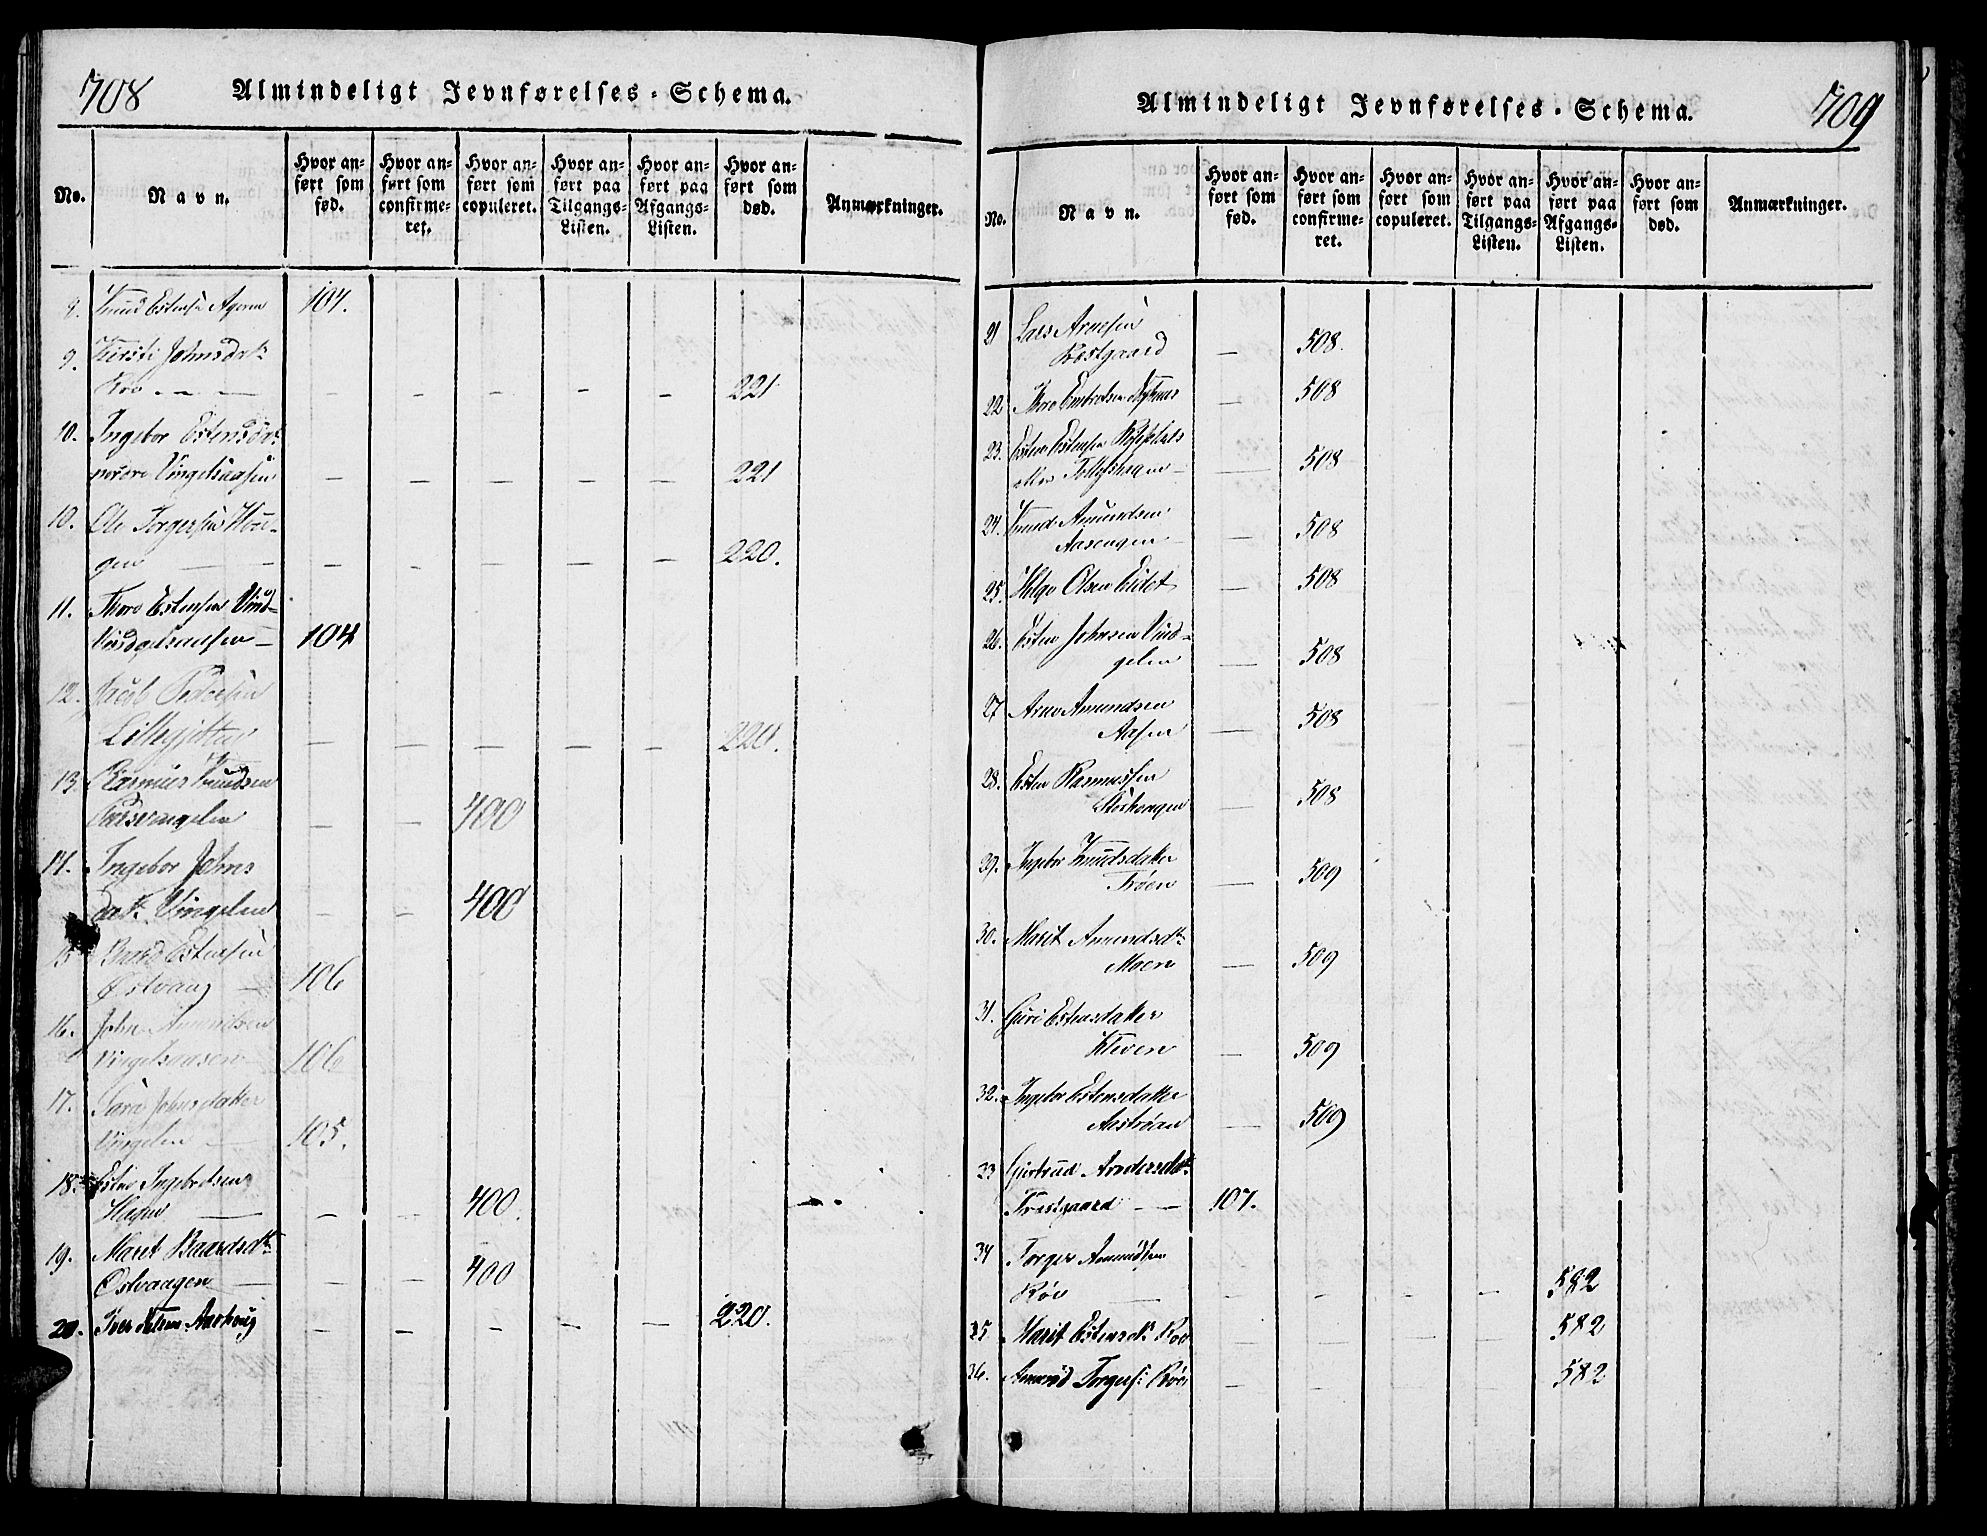 708
Almindeligt Jevnførelses-Schema.
No.
Navn.
Hvor anført som fød.
Hvor anført som confirmeret.
Hvor anført som copuleret.
Hvor anført paa Tilgangs-Listen.
Hvor anført paa Afgangs-Listen.
Hvor anført som død.
Anmærkninger.
8. Knud Estensen 104.
9. Kirsti Johnsdr
Roe - - - - - - - - 221
10. Ingebor Estensdr
nordre Vingelsaasen - - - - - 221
10. Ole Torgersen Hou-
gen - - - - - - 220.
11. Thore Estensen Vind-
Vindgelsaasen - 104
12. Jacob Pedersen
- - - - - 220.
13. Rasmus Knudsen
- - 400
14. Ingebor Johns
dat. Vingelen - - 400
15 Baard Estensen
Østvang - 106
16. John Amundsen
Vingelsaasen 106
17. Sara Johnsdatter
Vingelen - 105.
18. Esten Ingebretsen
Hagen - - - 400.
19. Maret Baardsdtr
Østvangen - - - 400
20. Iver - - - - - 220.
709
Almindeligt Jevnførelses-Schema.
No.
Navn.
Hvor anført som fød.
Hvor anført som confirmeret.
Hvor anført som copuleret.
Hvor anført paa Tilgangs-Listen.
Hvor anført paa Afgangs-Listen.
Hvor anført som død.
Anmærkninger.
21 Lars Arnesen
- 508.
22 Thore Embretsen - 508
23. Esten Estensen
eller - 508
24. Knud Amundsen
Aasengen - 508
25. Helge Olsen Eidet - 508
26. Esten Johnsen Vind-
gelen - 508
27 Arne Amundsen
Aasen - 508
28. Esten Rasmussen
- 508
29. Ingebor Knudsdatter
Trøen - 509
30. Marit Amundsdtr
Moen - 509
31. Guri Estensdatter
Kleven - 509
32. Ingebor Estensdatter
- 509
33 Gjertrud Andersdtr
Trostgaard - - 107.
34 Torger Amundsen
Røe - - - - - 582
35 Marit Estensdr Roe - - - - 582
36. Amund Torgers: Røe - - - - 582